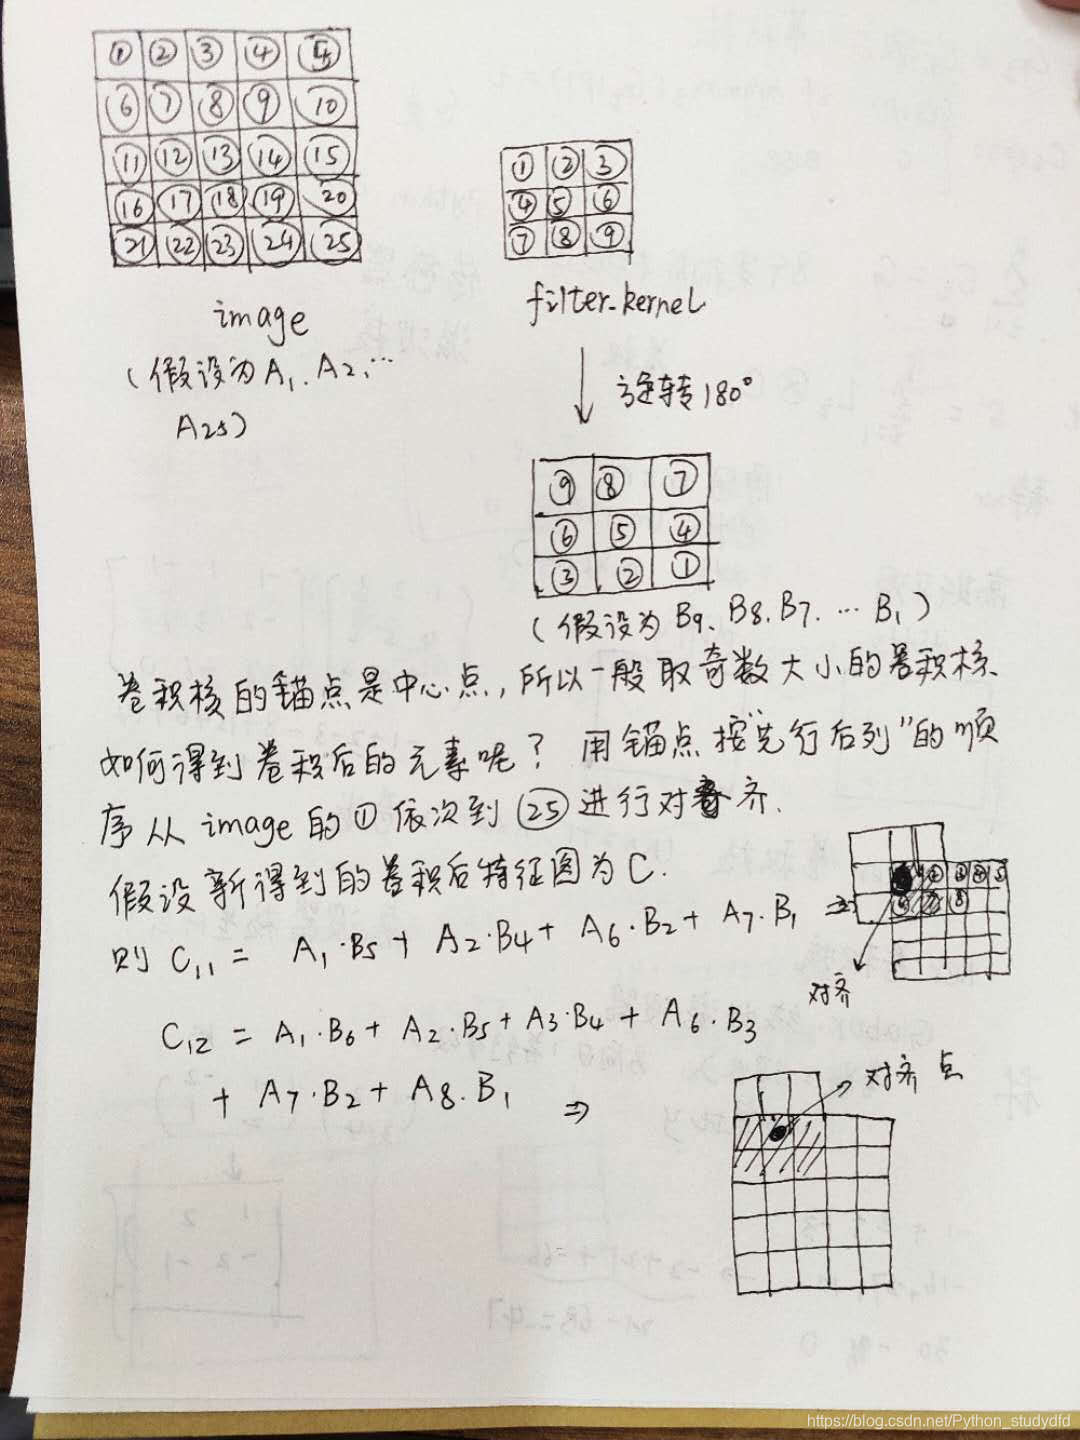 ① ② ③ ④ ⑤
⑥ ⑦ ⑧ ⑨ ⑩
⑪ ⑫ ⑬ ⑭ ⑮
⑯ ⑰ ⑱ ⑲ ⑳
㉑ ㉒ ㉓ ㉔ ㉕
image
(假设为A₁、A₂,…
A₂₅)
① ② ③
④ ⑤ ⑥
⑦ ⑧ ⑨
filter_kernel
旋转180°
⑨ ⑧ ⑦
⑥ ⑤ ④
③ ② ①
(假设为B₉、B₈、B₇、… B₁)
卷积核的锚点是中心点,所以一般取奇数大小的卷积核、
如何得到卷积后的元素呢? 用锚点按“先行后列”的顺
序从image的①依次到㉕进行对齐.
假设新得到的卷积后特征图为C.
则 C₁₁ = A₁·B₅+ A₂·B₄+ A₆·B₂+ A₇·B₁ ⇒
② ③ ④ ⑤
⑥ ⑧
对齐
C₁₂ = A₁·B₆+ A₂·B₅+A₃·B₄+ A₆·B₃
+ A₇·B₂+ A₈·B₁ ⇒
对齐点
https://blog.csdn.net/Python_studydfd